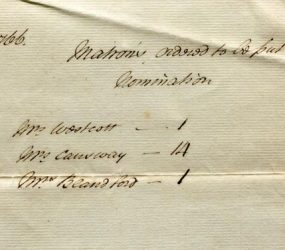 766.
Matrons ordered to be put
Nomination
Mrs Westcott — 1
Mrs Causway — 14
Mrs Blandford — 1